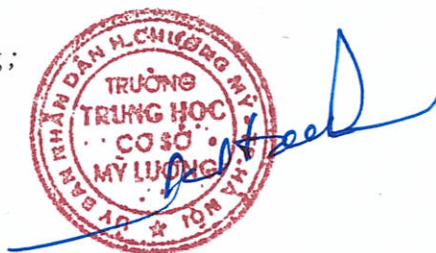 ;
ỦY BAN NHÂN DÂN H.CHƯƠNG MỸ
TRƯỜNG
TRUNG HỌC
CƠ SỞ
MỸ LƯƠNG
HÀ NỘI